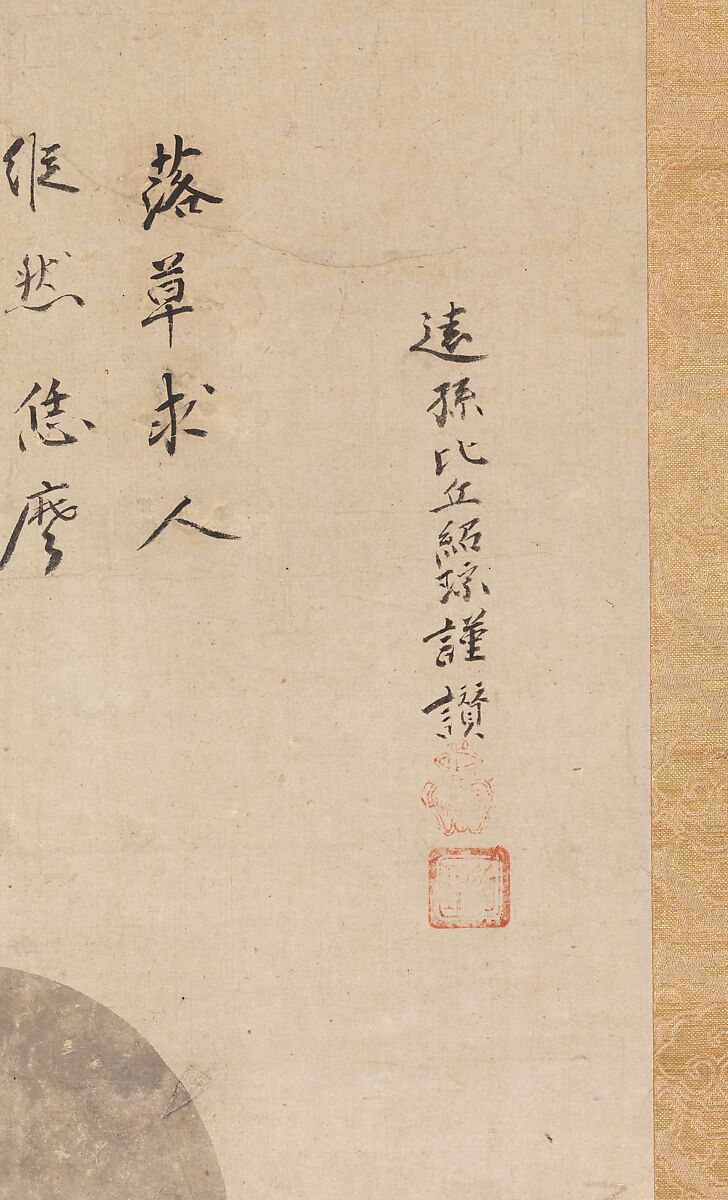 縱然恁麼
落草求人
遠孫比丘紹琮謹讃